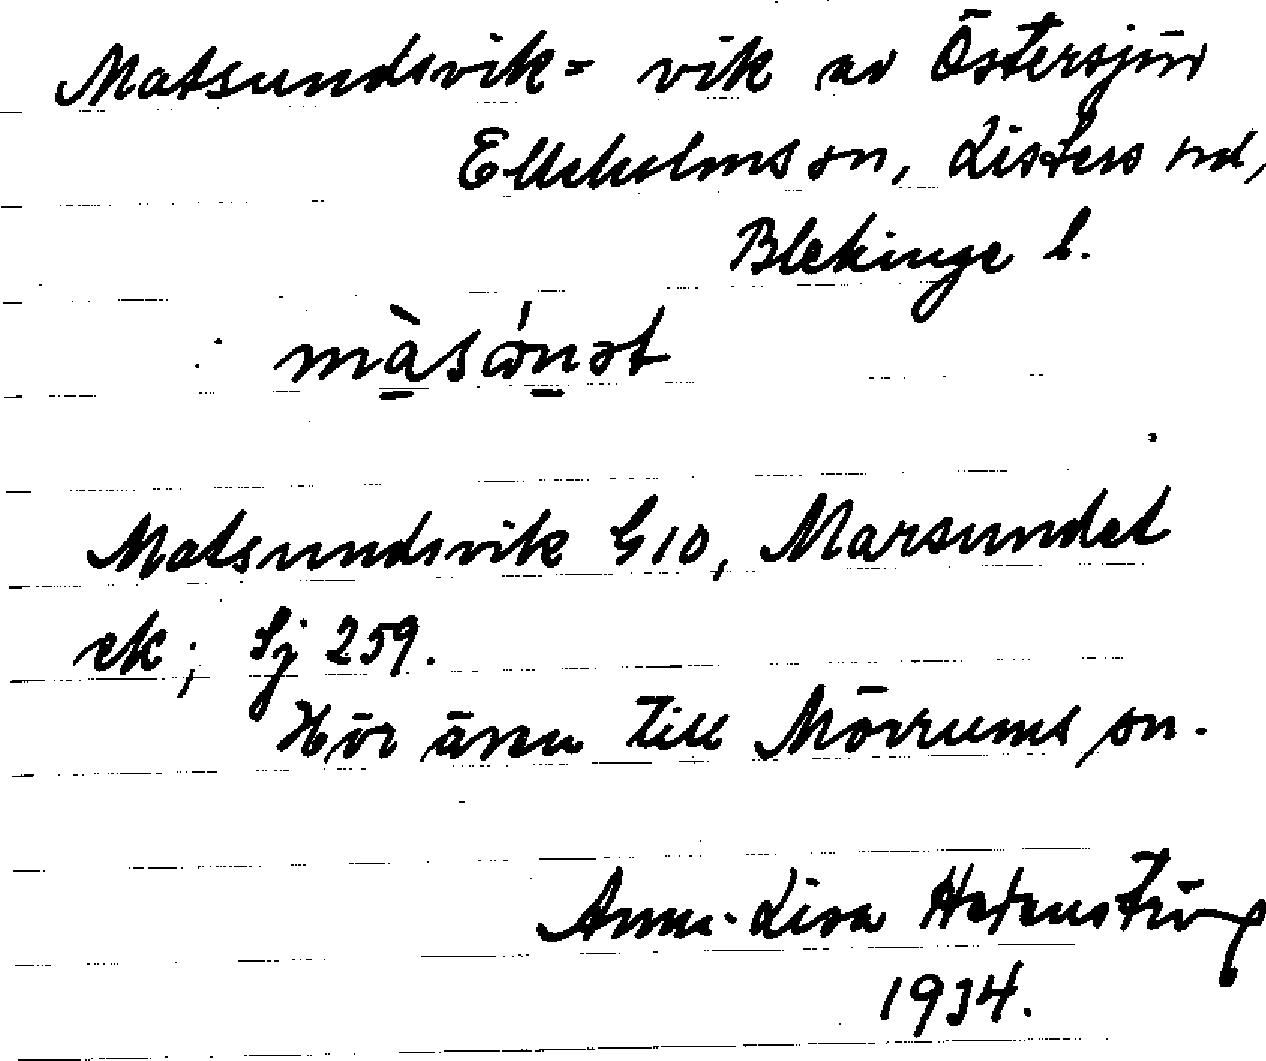 Matsundsvik = vik av Östersjön
Elleholms sn, Listers hd,
Blekinge l.
Matsundsvik G10, Marsundet
ek; Sj 259.
Hör även till Mörrums sn.
Anna-Lisa
1934.